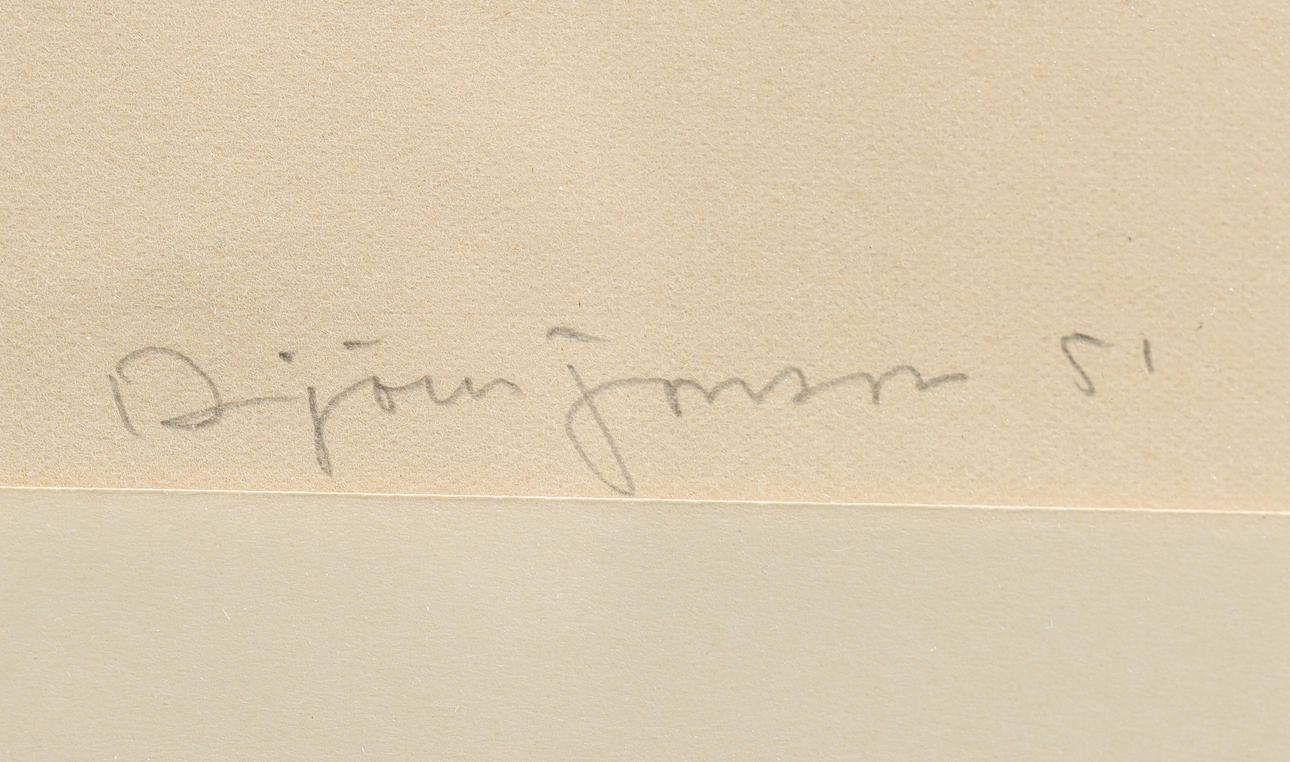 Björn Jonson 51